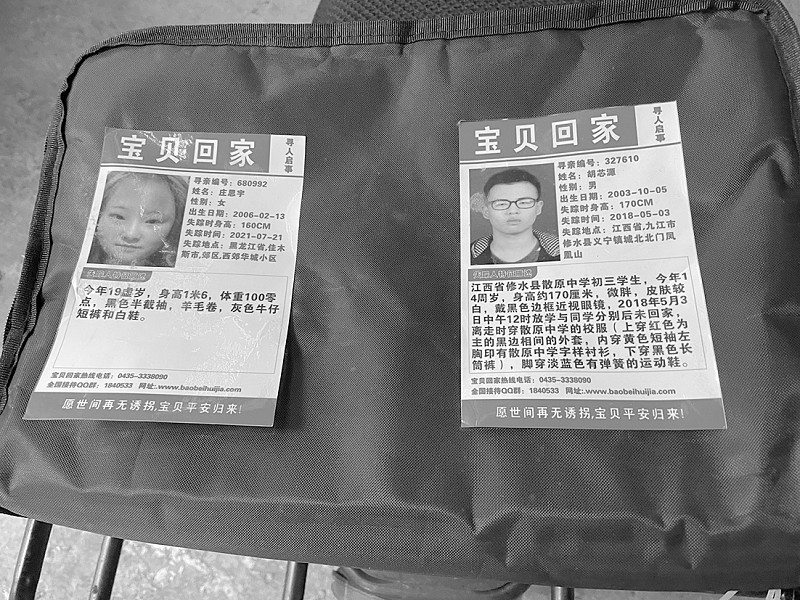 宝贝回家
寻人启事
寻亲编号：680992
姓名：庄思宇
性别：女
出生日期：2006-02-13
失踪时身高：160CM
失踪时间：2021-07-21
失踪地点：黑龙江省,佳木
斯市,郊区,西郊华城小区
失踪人特征描述
今年19虚岁，身高1米6，体重100零
点，黑色半截袖，羊毛卷，灰色牛仔
短裤和白鞋。
宝贝回家热线电话：0435-3338090
全国接待QQ群：1840533 网址:.www.baobeihuijia.com
愿世间再无诱拐,宝贝平安归来!
宝贝回家
寻人启事
寻亲编号：327610
姓名：胡芯源
性别：男
出生日期：2003-10-05
失踪时身高：170CM
失踪时间：2018-05-03
失踪地点：江西省,九江市
修水县义宁镇城北北门凤
凰山
失踪人特征描述
江西省修水县散原中学初三学生，今年1
4周岁，身高约170厘米，微胖，皮肤较
白，戴黑色边框近视眼镜，2018年5月3
日中午12时放学与同学分别后未回家，
离走时穿散原中学的校服（上穿红色为
主的黑边相间的外套，内穿黄色短袖左
胸印有散原中学字样衬衫，下穿黑色长
筒裤），脚穿淡蓝色有弹簧的运动鞋。
宝贝回家热线电话：0435-3338090
全国接待QQ群：1840533 网址:.www.baobeihuijia.com
愿世间再无诱拐,宝贝平安归来!